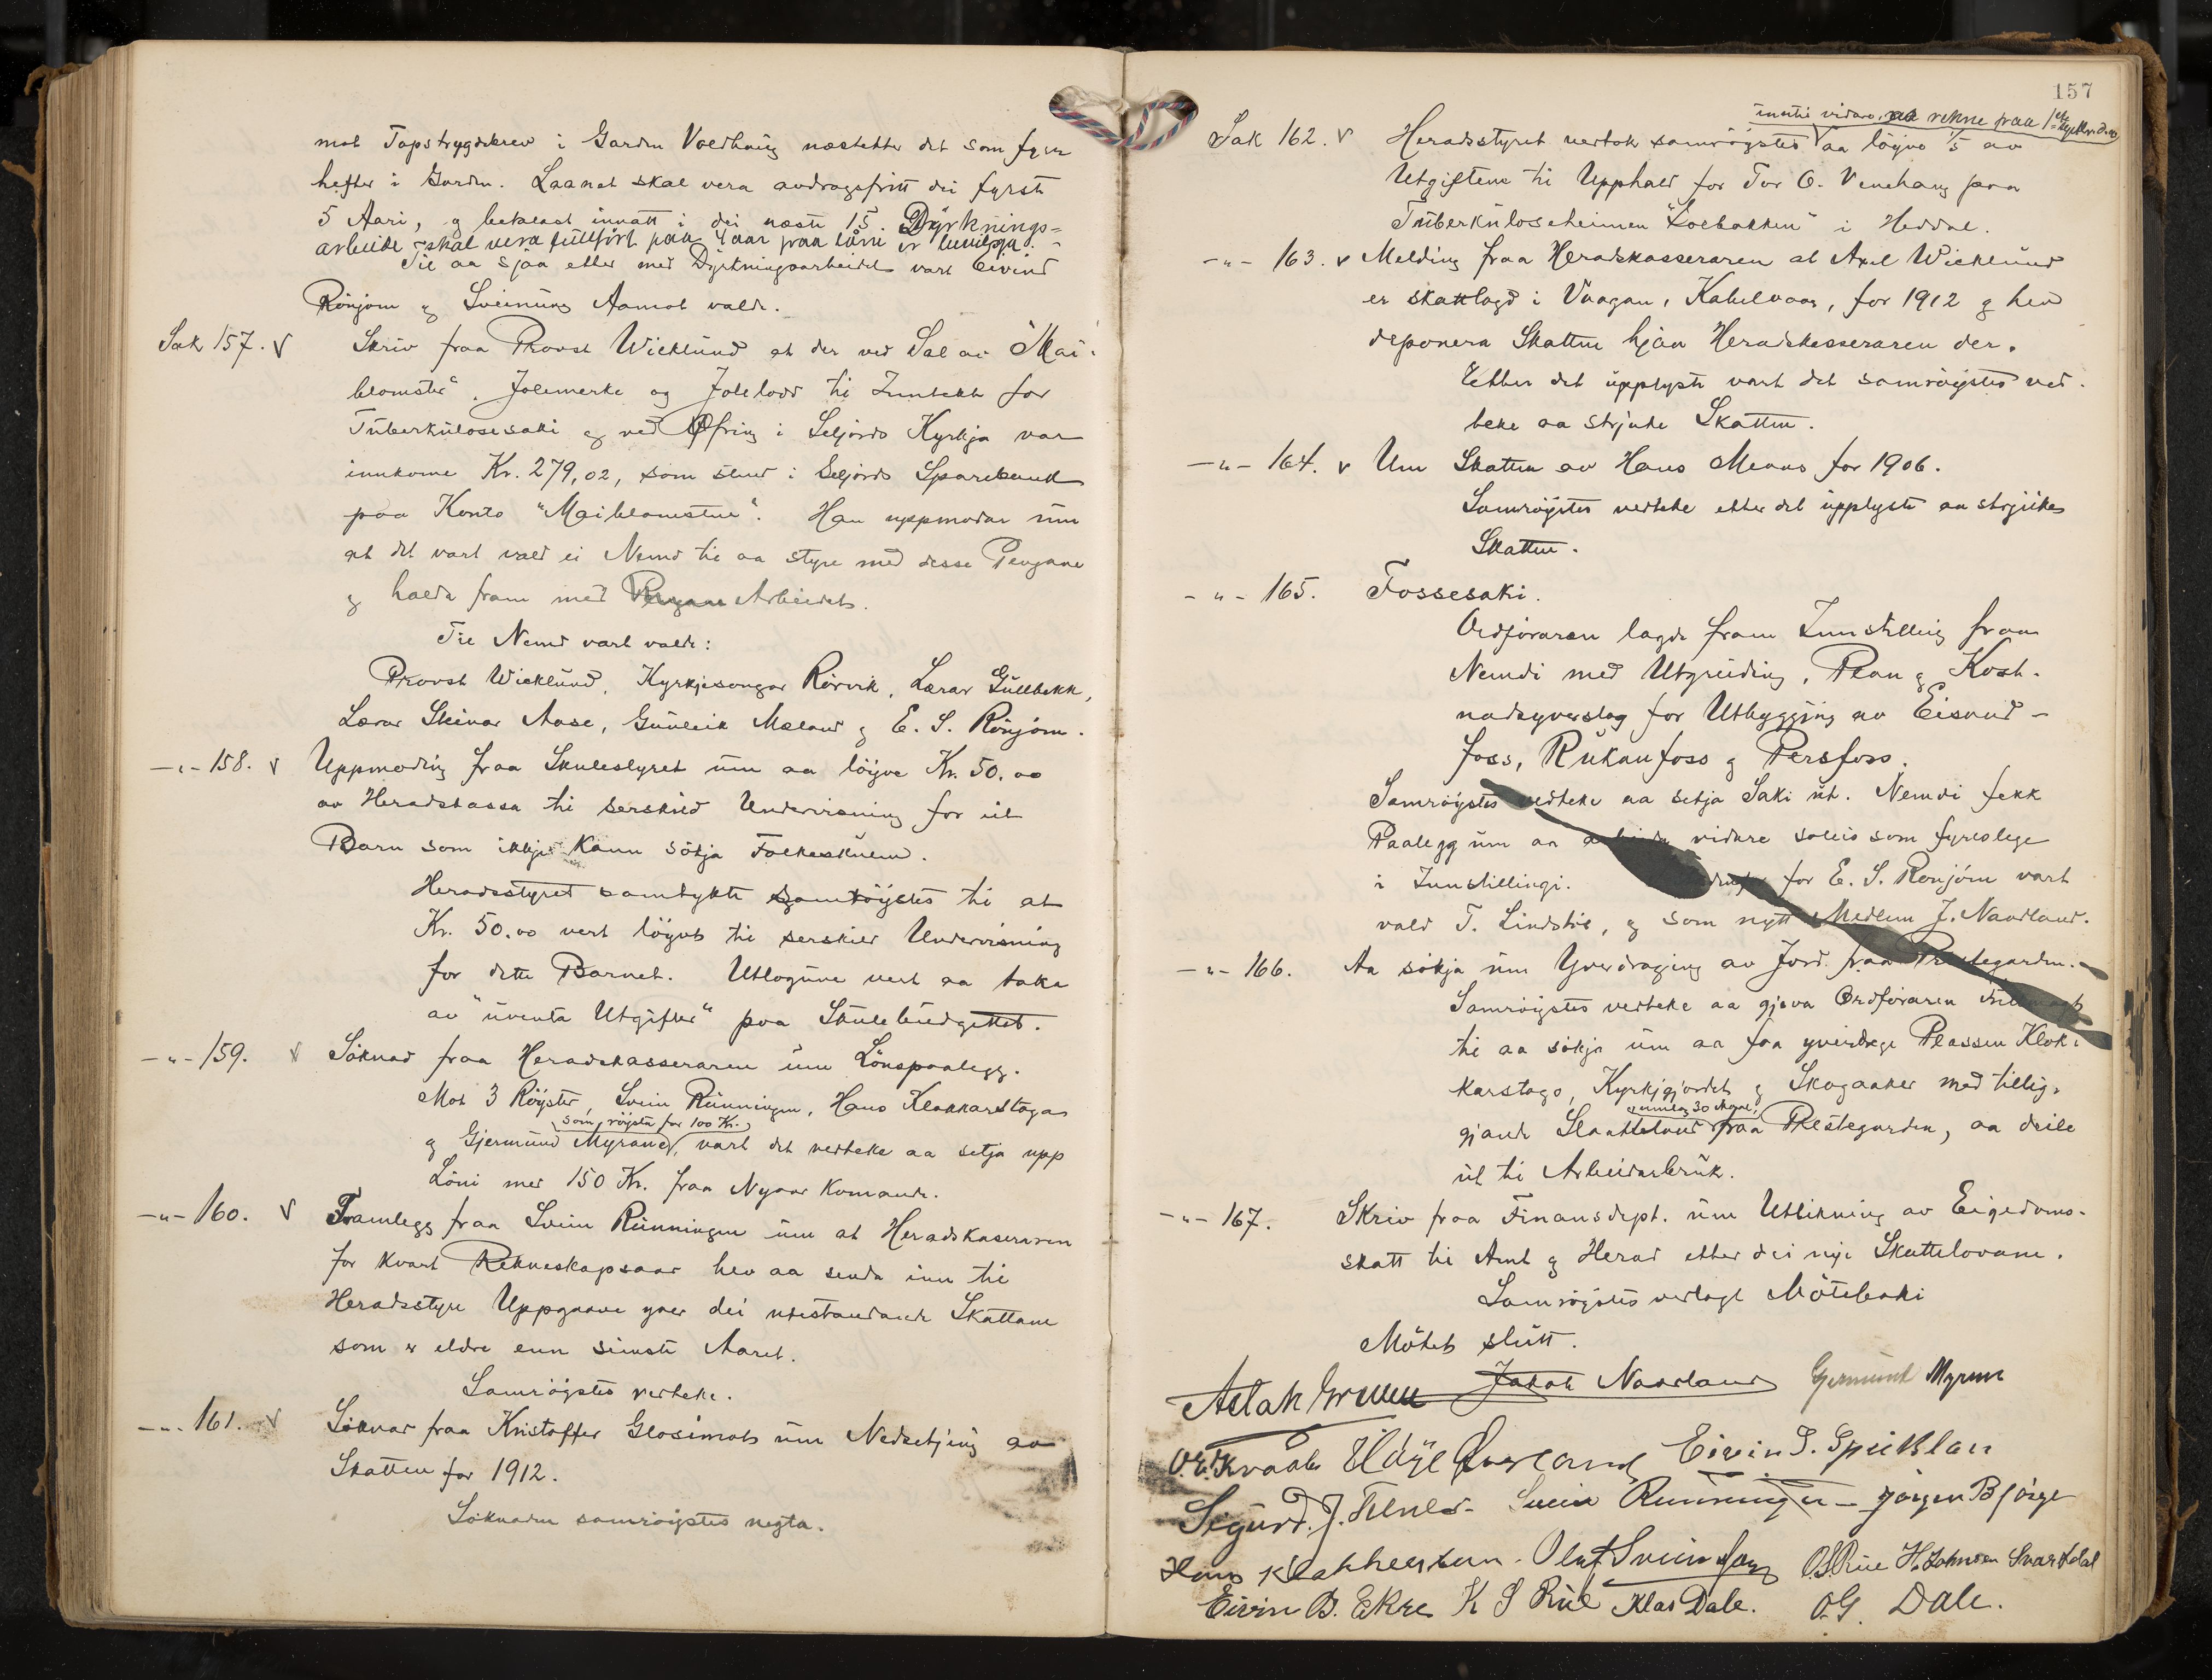 mot Tapstrygdebrev i Garden Voldhaug næstetter det som fyrr
hefter i Garden. Laanet skal vera avdragsfritt dei fyrste
5 Aari, og betalast innatt i dei næste 15. Dyrknings-
arbeide skal vera fullført paa 4 aar fraa lånn er beviliga.
Til aa sjaa etter med Dyrkningsarbeidet vart Eivind
Rönjom og Sveinung Aamot valde.
Sak 157. v Skriv fraa Provst Wicklund at der ved Sal av "Mai-
blomster", Jolemerke og Jolelodd til Inntekt for
Tuberkulosesaki og ved Ofring i Seljords Kyrkja var
innkome Kr. 279,02, som stend i Seljords Sparebank
paa Konto "Maiblomstur". Han uppmodar um
at det vart vald ei Nemd til aa styre med desse Pengane
og halda fram med Arbeidet.
Til Nemd vart valde:
Provst Wicklund, Kyrkjesongar Rörvik, Lærar Gullbekk,
Lærar Steinar Aase, Gunleik Mæland og E. S. Rönjom.
-"- 158. v Uppmoding fraa Skulestyret um aa löyve Kr. 50.00
av Heradskassa til serskild Undervisning for eit
Barn som ikkje kann sökja Folkeskulen.
Heradsstyret samtykte samröystes til at
Kr. 50.00 vert löyvt til serskild Undervisning
for dette Barnet. Utlogune vert aa taka
av "uventa Utgifter" paa Skulebudgettet.
-"- 159. v Söknad fraa Heradskasseraren um Lönspaalegg.
Mot 3 Röyster, Svein Rünningen, Hans Klokkarstaga
som röyste for 100 Kr.
og Gjermund Myrane, vart det vedteke aa setja upp
Löni med 150 Kr. fraa Nyaar komande.
-"- 160. v Framlegg fraa Svein Rünningen um at Heradskaseraren
for kvart Rekneskapsaar hev aa senda inn til
Heradsstyre Uppgaave yver dei utestaudande Skattane
som er eldre enn siuste Aaret.
Samröystes vedteke.
-"- 161. v Söknad fraa Kristoffer Glosimot um Nedsetjing av
Skatten for 1912.
Söknaden samröystes negta.
157
inntil vidare, aa rekne fraa 1ste
Sak 162. v Heradsstyret vedtok samröystes aa löyve 1/5 av
Utgiftene til Upphald for Tor O. Venehaug paa
Tuberkuloseheimen "Solbakken" i Heddal.
-"- 163. v Melding fraa Heradskasseraren at Axel Wicklund
er skattlagd i Vaagan, Kabelvaag, for 1912 og hev
deponera Skatten hjaa Heradskasseraren der.
Etter det upplyste vart det samröystes ved-
teke aa strjuke Skatten.
-"- 164. v Um Skatten av Hans Moens for 1906.
Samröystes vedteke etter det upplyste aa strjuke
Skatten.
-"- 165. Fossesaki.
Ordföraren lagde fram Innstilling fraa
Nemdi med Utgreiding, Plan og Kost-
nadsyverslag for Utbyggjing av Eisand-
foss, Rukanfoss og Persfoss.
Samröystes vedteke aa setja Saki ut. Nemdi fekk
Paalegg um aa arbeide vidare soleis som fyreslege
i Innstillingi. for E. S. Ronjom vart
vald T. Lindstöl, og som nytt Medlem J. Naadland.
-"- 166. Aa sökja um Yverdraging av Jord fraa Prestegarden.
Samröystes vedteke aa gjeva Ordföraren Fullmagt
til aa sökja um aa faa yverdrege Plassen Klok-
karstago, Kyrkjegjordet og Skogaaker med tillig-
umlag 30 Maal,
gjande Slaatteland fraa Prestegarden, aa deile
ut til Arbeidarbruk.
-"- 167. Skriv fraa Finansdept. um Utlikning av Eigedoms-
skatt til Amt og Herad etter dei nye Skattelovane.
Samröystes vedlagt Mötebaki
Mötet slutt.
Jakob Naadland Gjermund Myrane
O. E. Kvaale Eivin S. Spieklan
Sigurd. J. Svein Runningen Jörgen Björge
Hans Olaf Sveinsson O. S. Rue H. Johnsen Svartdal
Eivin B. Ekre K S Rue Klas Dale. O. G. Dale.